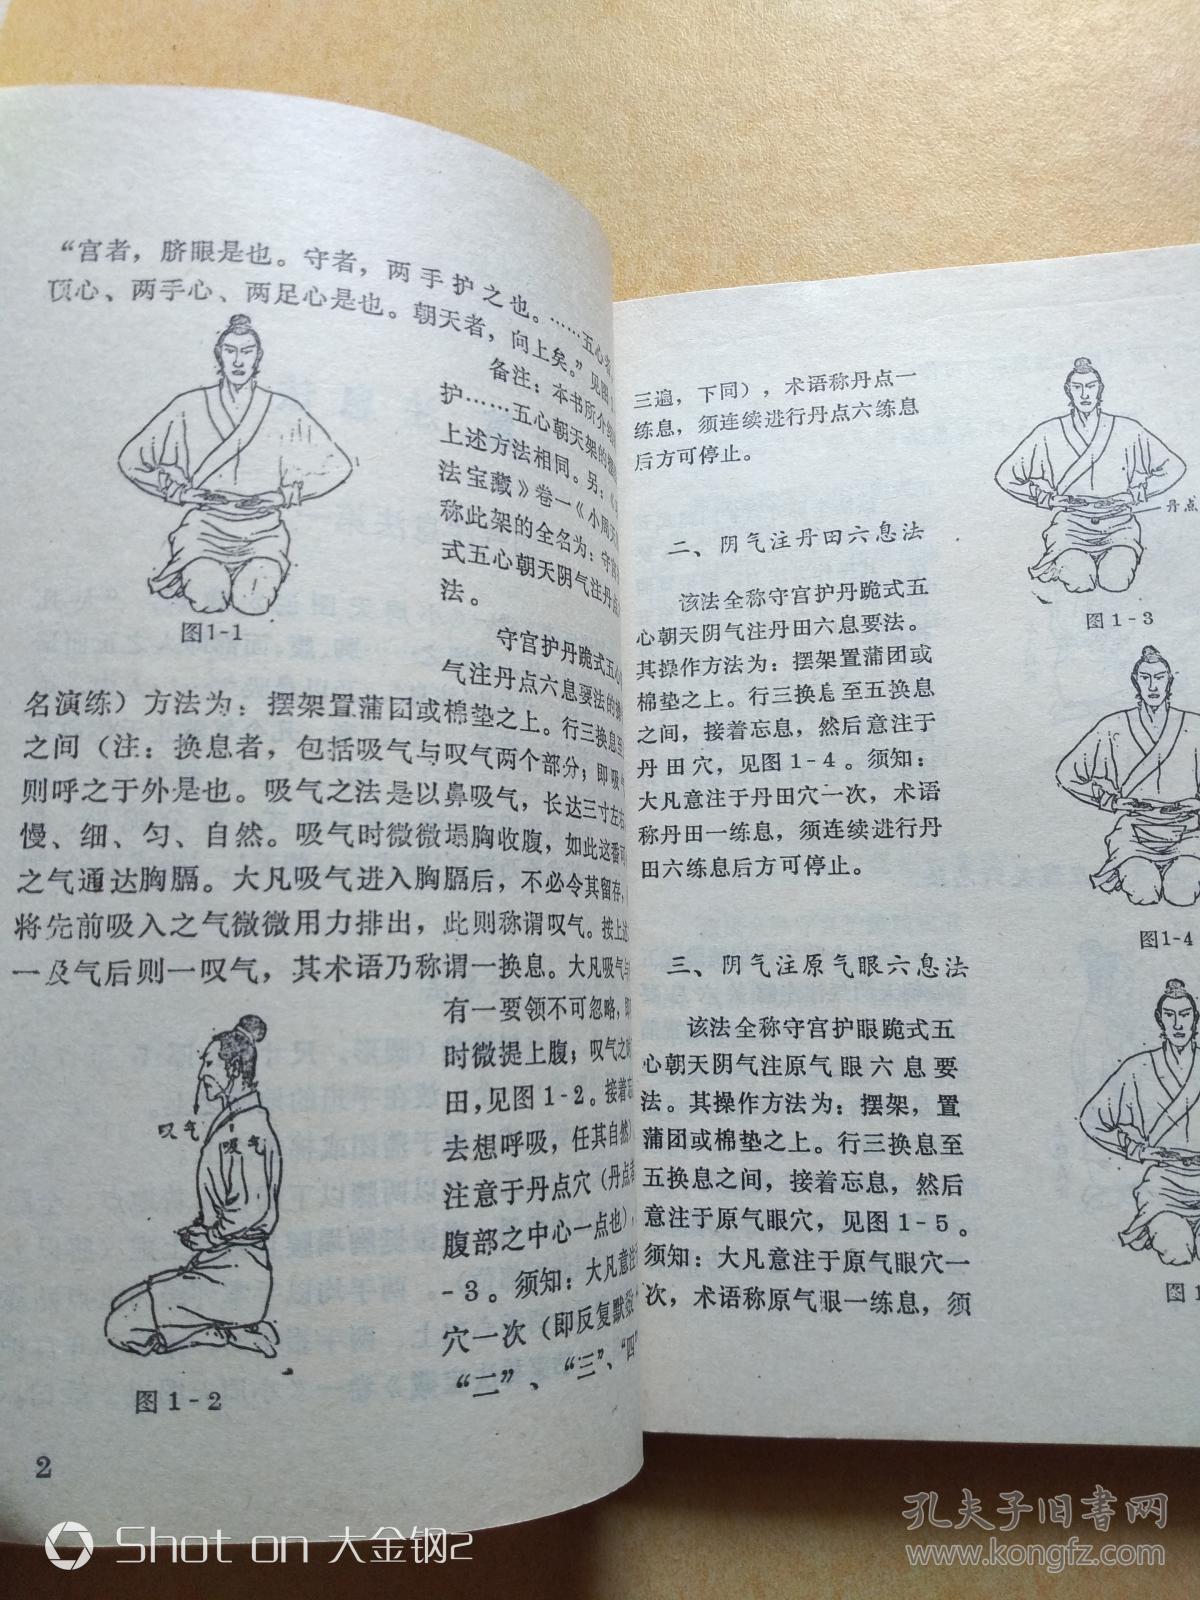 “宫者，脐眼是也。守者，两手护之也。……五心者，
顶心、两手心、两足心是也。朝天者，向上矣。”见图
图1-1
备注：本书所介绍
护……五心朝天架的
上述方法相同。另：《
法宝藏》卷一《小周天
称此架的全名为：守宫
式五心朝天阴气注丹点
法。
守宫护丹跪式五心
气注丹点六息要法的操
名演练）方法为：摆架置蒲团或棉垫之上。行三换息至
之间（注：换息者，包括吸气与叹气两个部分；即吸气
则呼之于外是也。吸气之法是以鼻吸气，长达三寸左右
慢、细、匀、自然。吸气时微微塌胸收腹，如此这番可
之气通达胸膈。大凡吸气进入胸膈后，不必令其留存，
将先前吸入之气微微用力排出，此则称谓叹气。按上述
一及气后则一叹气，其术语乃称谓一换息。大凡吸气与
有一要领不可忽略，即
时微提上腹；叹气之时
田，见图1-2。接着忘
去想呼吸，任其自然）
注意于丹点穴（丹点者
腹部之中心一点也），
-3。须知：大凡意注
穴一次（即反复默数“
“二”、“三”、“四”
叹气
吸气
图1-2
2
三遍，下同），术语称丹点一
练息，须连续进行丹点六练息
后方可停止。
丹点
图1-3
二、阴气注丹田六息法
该法全称守宫护丹跪式五
心朝天阴气注丹田六息要法。
其操作方法为：摆架置蒲团或
棉垫之上。行三换息至五换息
之间，接着忘息，然后意注于
丹田穴，见图1-4。须知：
大凡意注于丹田穴一次，术语
称丹田一练息，须连续进行丹
田六练息后方可停止。
图1-4
三、阴气注原气眼六息法
该法全称守宫护眼跪式五
心朝天阴气注原气眼六息要
法。其操作方法为：摆架，置
蒲团或棉垫之上。行三换息至
五换息之间，接着忘息，然后
意注于原气眼穴，见图1-5。
须知：大凡意注于原气眼穴一
次，术语称原气眼一练息，须
图1
Shot on 大金钢2
孔夫子旧书网
www.kongfz.com